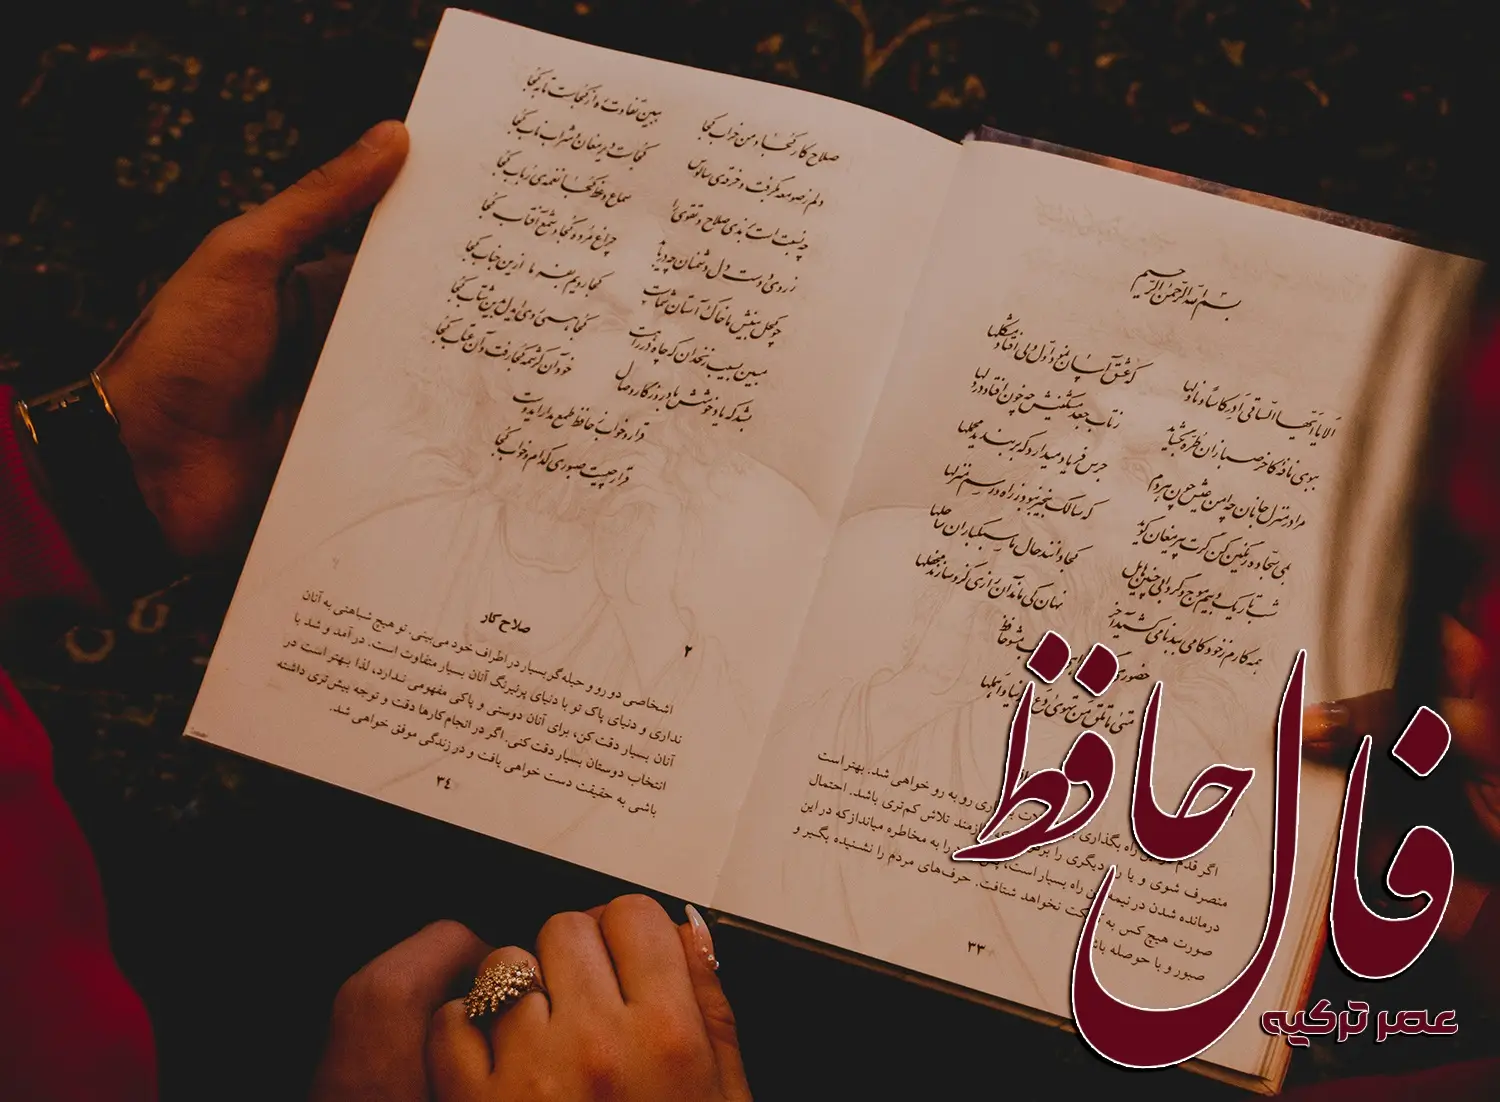 بسم الله الرحمن الرحیم
الا یا ایها الساقی ادر کاسا و ناولها که عشق آسان نمود اول ولی افتاد مشکلها
ببوی نافه کاخر صبا زان طره بگشاید ز تاب جعد مشکینش چه خون افتاد در دلها
مرا در منزل جانان چه امن عیش چون هردم جرس فریاد میدارد که بربندید محملها
بمی سجاده رنگین کن گرت پیر مغان گوید که سالک بیخبر نبود ز راه و رسم منزلها
شب تاریک و بیم موج و گردابی چنین هایل کجا دانند حال ما سبکباران ساحلها
همه کارم ز خود کامی ببدنامی کشید آخر نهان کی ماند آن رازی کزو سازند محفلها
حضوری مشو حافظ
متی ما تلق من تهوی دع الدنیا و اهملها
اگر قدم راه بگذاری رو به رو خواهی شد. بهتر است
منصرف شوی و یا دیگری را نیازمند تلاش کم‌تری باشد. احتمال
درمانده شدن در نیمه راه بسیار است، را به مخاطره میانداز که در این
صورت هیچ کس به نخواهد شتافت. حرف‌های مردم را نشنیده بگیر و
صبور و با حوصله
۳۳
صلاح کار کجا و من خراب کجا ببین تفاوت ره از کجاست تا به کجا
دلم ز صومعه بگرفت و خرقه‌ی سالوس کجاست دیر مغان و شراب ناب کجا
چه نسبت است به رندی صلاح و تقوی را سماع وعظ کجا نغمه‌ی رباب کجا
ز روی دوست دل دشمنان چه دریابد چراغ مرده کجا و شمع آفتاب کجا
چو کحل بینش ما خاک آستان شماست کجا رویم بفرما ازین جناب کجا
مبین بسیب زنخدان که چاه در راهست کجا همی روی ای دل بدین شتاب کجا
بشد که یاد خوشش باد روزگار وصال خود آن کرشمه کجا رفت و آن عتاب کجا
قرار و خواب ز حافظ طمع مدار ای دوست
قرار چیست صبوری کدام و خواب کجا
۲
صلاح کار
اشخاصی دو رو و حیله‌گر بسیار در اطراف خود می‌بینی. تو هیچ شباهتی به آنان
نداری و دنیای پاک تو با دنیای پرنیرنگ آنان بسیار متفاوت است. در آمد و شد با
آنان بسیار دقت کن، برای آنان دوستی و پاکی مفهومی ندارد، لذا بهتر است در
انتخاب دوستان بسیار دقت کنی. اگر در انجام کارها دقت و توجه بیش‌تری داشته
باشی به حقیقت دست خواهی یافت و در زندگی موفق خواهی شد.
۳٤
فال حافظ
عصر ترکیه